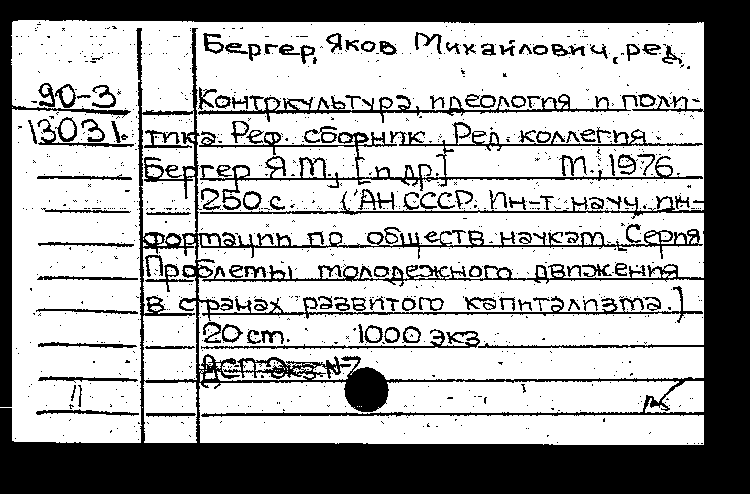 Бергер, Яков Михайлович, ред.
90-3 Контркультура, идеология и поли-
13031. тика. Реф. сборник. Ред. коллегия:
Бергер Я.М., [и др.] М., 1976.
250 с. (АН СССР. Ин-т науч. ин-
формации по обществ. наукам. Серия
Проблемы молодежного движения
в странах развитого капитализма.]
20 cm. 1000 экз.
ДСП. Экз. №7
11